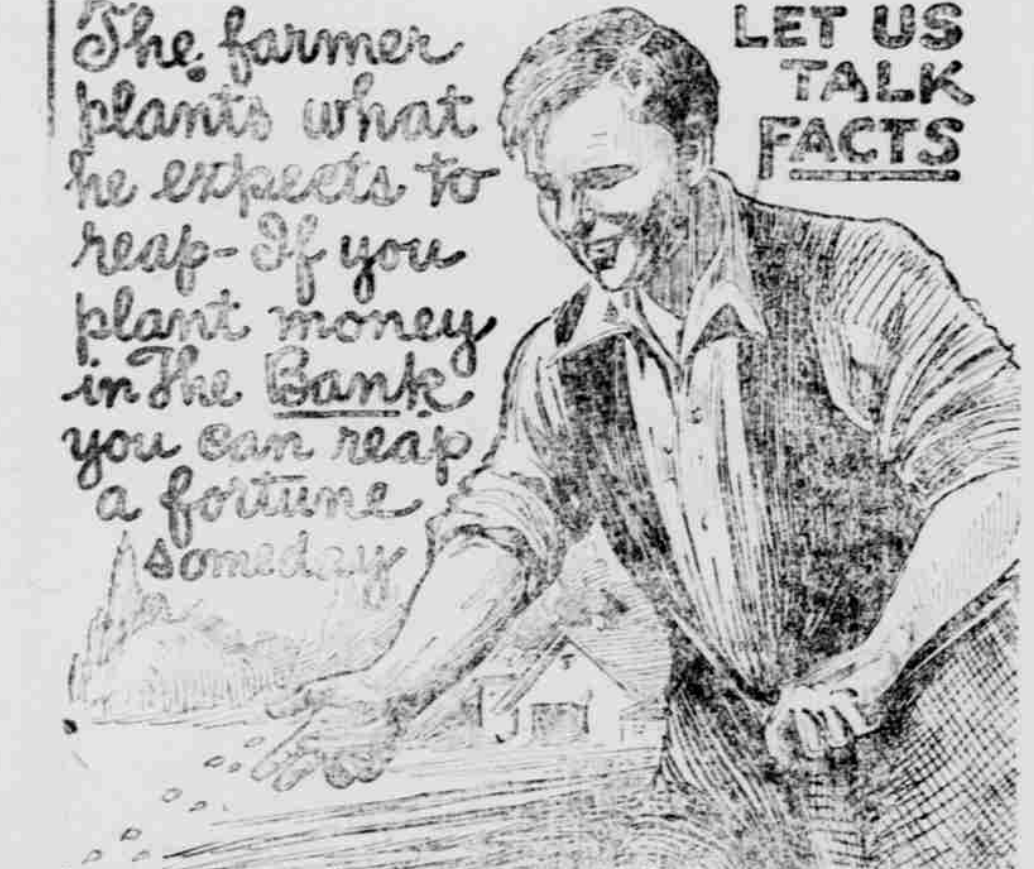 The farmer
plants what
he expects to
reap - If you
plant money
in The Bank
you can reap
a fortune
someday
LET US
TALK
FACTS